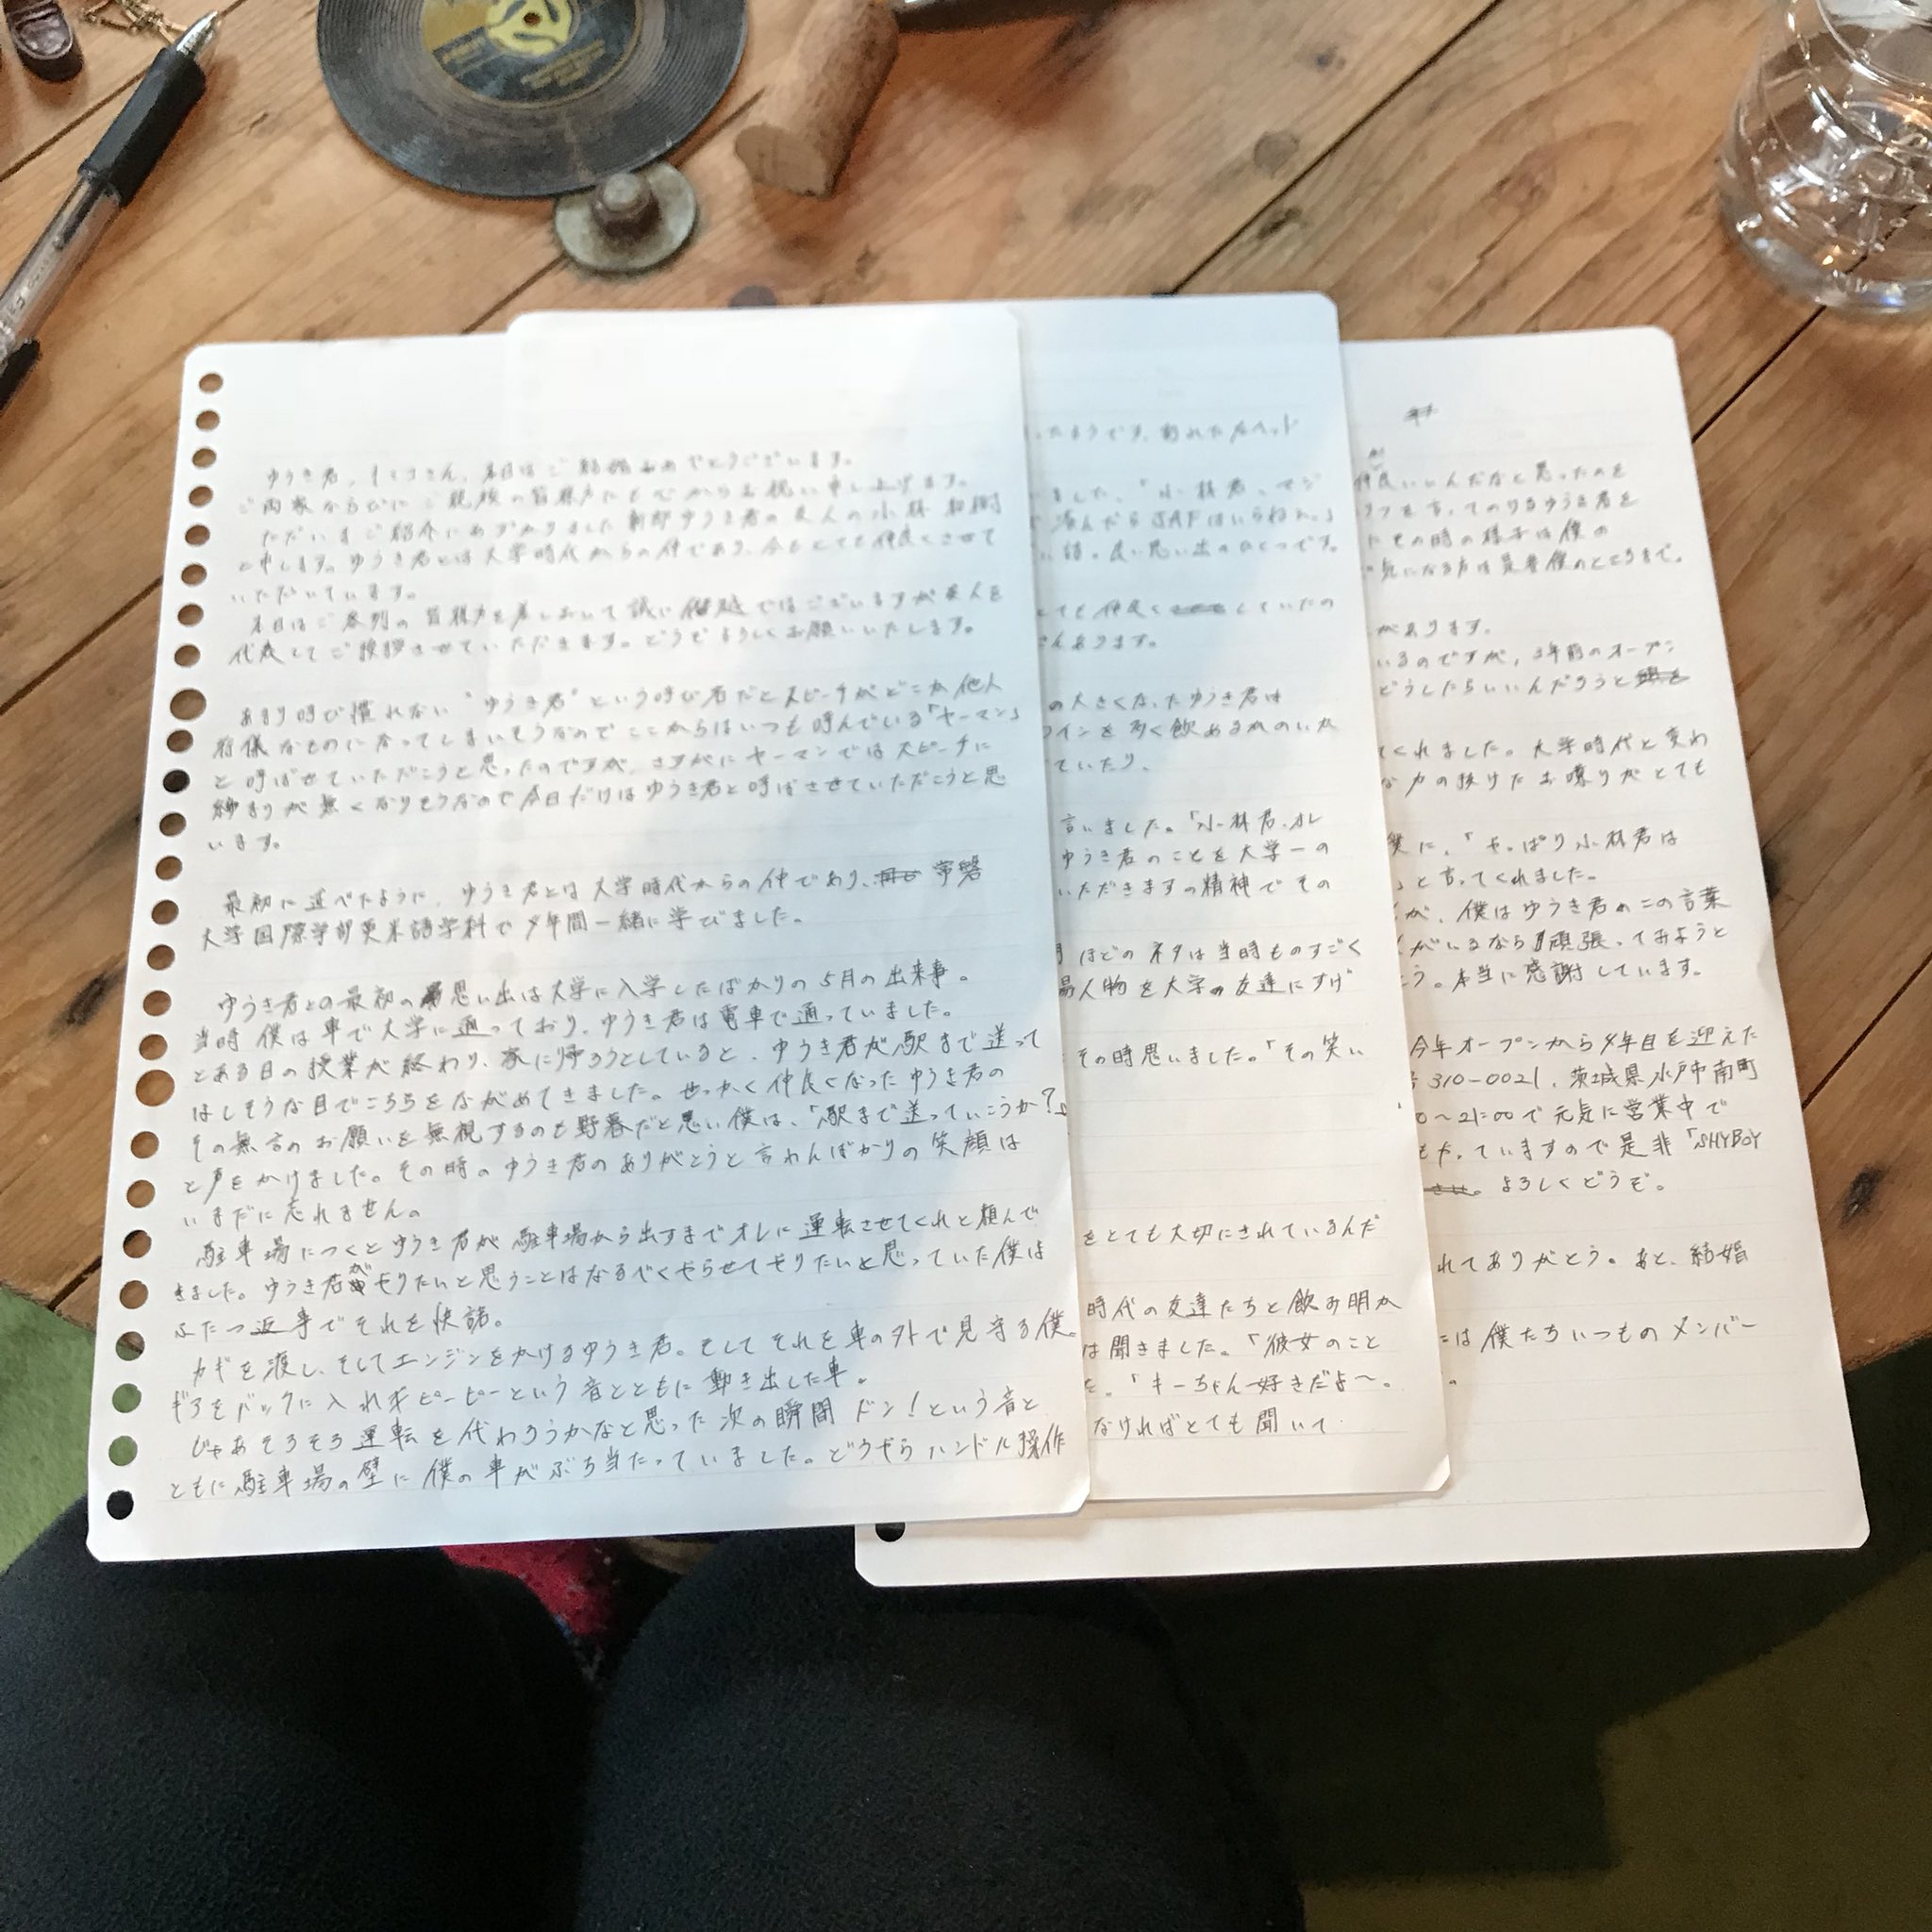 ゆうき君、 さん、本日はご結婚おめでとうございます。
ご両家ならびにご親族の皆様方に心からお祝い申し上げます。
ただいまご紹介にあずかりました新郎ゆうき君の友人の小林
と申します。ゆうき君とは大学時代からの仲であり、今もとても仲良くさせて
いただいています。
本日はご参列の皆様方を差しおいて誠に僭越ではございますが友人を
代表してご挨拶させていただきます。どうぞよろしくお願いいたします。
あまり呼び慣れない“ゆうき君”という呼び名だとスピーチがどこか他人
行儀なものになってしまいそうなのでここからはいつも呼んでいる「ヤーマン」
と呼ばせていただこうと思ったのですが、さすがにヤーマンではスピーチに
締まりが無くなりそうなので今日だけはゆうき君と呼ばさせていただこうと思
います。
最初に述べたように、ゆうき君とは大学時代からの仲であり、常磐
大学国際学部英米語学科で4年間一緒に学びました。
ゆうき君との最初の思い出は大学に入学したばかりの5月の出来事。
当時僕は車で大学に通っており、ゆうき君は電車で通っていました。
とある日の授業が終わり、家に帰ろうとしていると、ゆうき君が駅まで送って
ほしそうな目でこちらをながめてきました。せっかく仲良くなったゆうき君の
その無言のお願いを無視するのも野暮だと思い僕は、「駅まで送っていこうか?」
と声をかけました。その時のゆうき君のありがとうと言わんばかりの笑顔は
いまだに忘れません。
駐車場につくとゆうき君が駐車場から出すまでオレに運転させてくれと頼んで
きました。ゆうき君がやりたいと思うことはなるべくやらせてやりたいと思っていた僕は
ふたつ返事でそれを快諾。
カギを渡し、そしてエンジンをかけるゆうき君。そしてそれを車の外で見守る僕。
ギアをバックに入れピーピーという音とともに動き出した車。
じゃあそろそろ運転を代わろうかなと思った次の瞬間ドン!という音と
ともに駐車場の壁に僕の車がぶち当たっていました。どうやらハンドル操作
ったそうです。割れたヘッド
ました。「小林君、マジ
済んだらJAFはいらねん。」
話。良い思い出のひとつです。
ても仲良くしていたの
さんあります。
の大きくなったゆうき君は
ワインを多く飲めるかのいた
ていたり、
言いました。「小林君、オレ
ゆうき君のことを大学一の
いただきますの精神でその
ほどのネタは当時ものすごく
場人物を大学の友達にすげ
その時思いました。「その笑い
をとても大切にされているんだ
時代の友達たちと飲み明か
は聞きました。「彼女のこと
た。「キーちゃん好きだよ〜。
なければとても聞いて
仲が良いんだなと思ったのを
を言ってのけるゆうき君を
その時の様子は僕の
気になる方は是非僕のところまで。
があります。
いるのですが、3年前のオープン
どうしたらいいんだろうと
てくれました。大学時代と変わ
な力の抜けたお喋りがとても
僕に、「やっぱり小林君は
」と言ってくれました。
が、僕はゆうき君のこの言葉
がいるなら頑張ってみようと
う。本当に感謝しています。
今年オープンから4年目を迎えた
310-0021、茨城県水戸市南町
0〜21:00で元気に営業中で
もやっていますので是非「SHYBOY
よろしくどうぞ。
れてありがとう。あと、結婚
には僕たちいつものメンバー